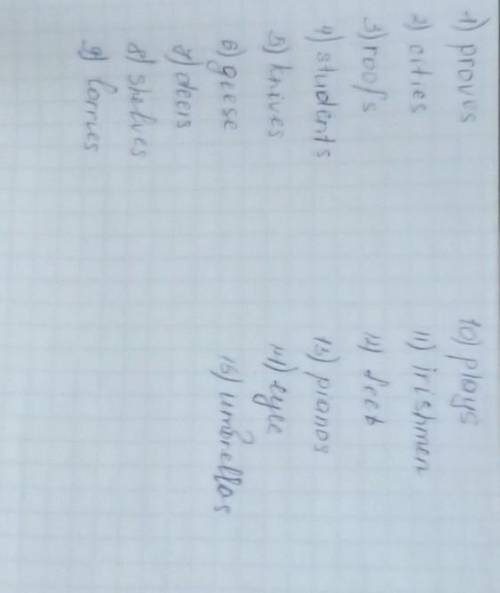 1) proves
2) cities
3) roofs
4) students
5) knives
6) geese
7) deers
8) shelves
9) lorries
10) plays
11) irishmen
12) feet
13) pianos
14)
15) umbrellas